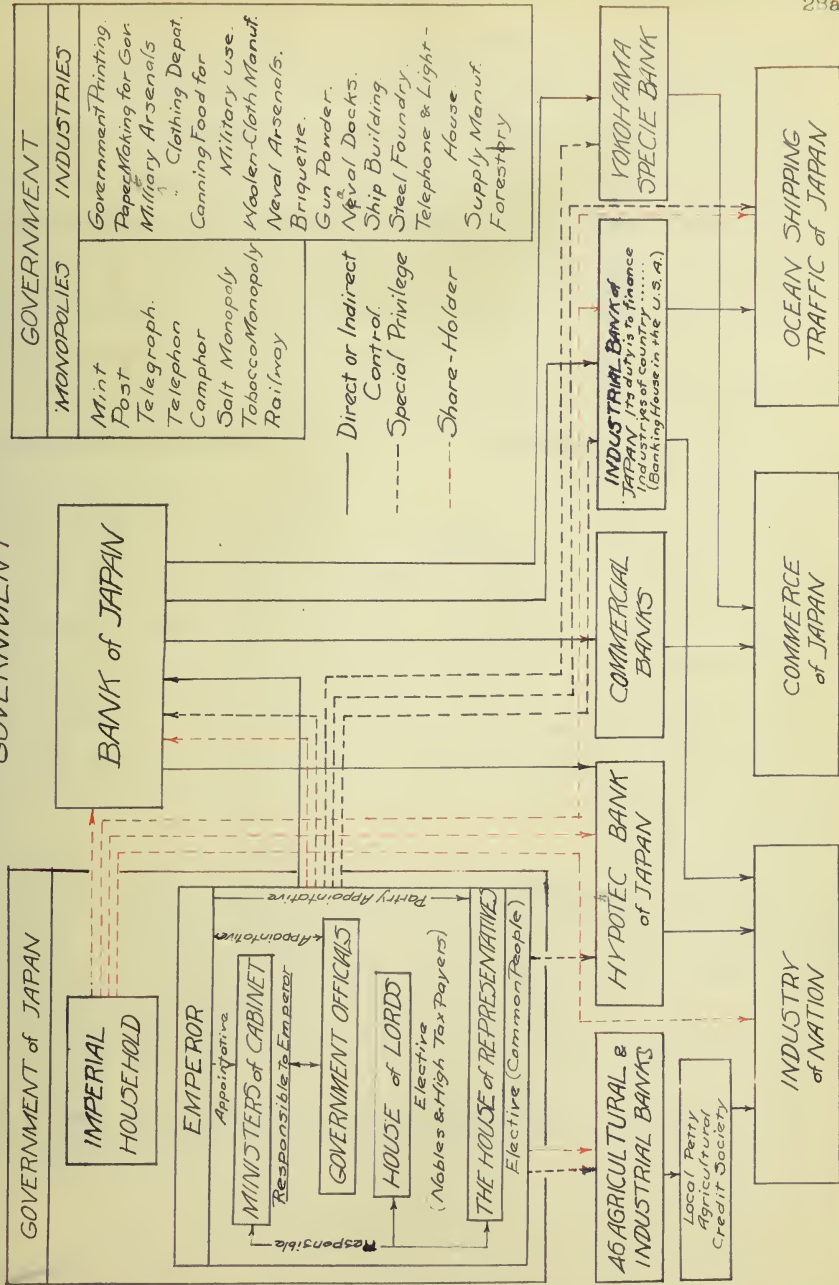 28a
GOVERNMENT
GOVERNMENT of JAPAN
IMPERIAL
HOUSEHOLD
EMPEROR
Appointative
MINISTERS of CABINET
Responsible to Emperor
Appointative
GOVERNMENT OFFICIALS
Partry Appointative
HOUSE of LORDS
Elective
(Nobles & High Tax Payers)
THE HOUSE of REPRESENTATIVES
Elective (Common People)
Responsible
BANK of JAPAN
GOVERNMENT
MONOPOLIES
Mint
Post
Telegraph.
Telephon
Camphor
Salt Monopoly
Tobacco Monopoly
Railway
INDUSTRIES
Government Printing.
Paper Making for Gov.
Milliary Arsenals
" Clothing Depat.
Canning Food for
Military use.
Woolen-Cloth Manuf.
Neval Arsenals.
Briquette.
Gun Powder.
Neval Docks.
Ship Building
Steel Foundry.
Telephone & Light-
House
Supply Manuf.
Forestory
Direct or Indirect
Control.
Special Privilege
Share-Holder
46 AGRICULTURAL &
INDUSTRIAL BANKS
HYPOTEC BANK
of JAPAN
COMMERCIAL
BANKS
INDUSTRIAL BANK of
JAPAN Its duty is to finance
industryes of country......
(Banking House in the U.S.A.)
YOKOHAMA
SPECIE BANK
Local Petty
Agricultural
Credit Society
INDUSTRY
of NATION
COMMERCE
of JAPAN
OCEAN SHIPPING
TRAFFIC of JAPAN